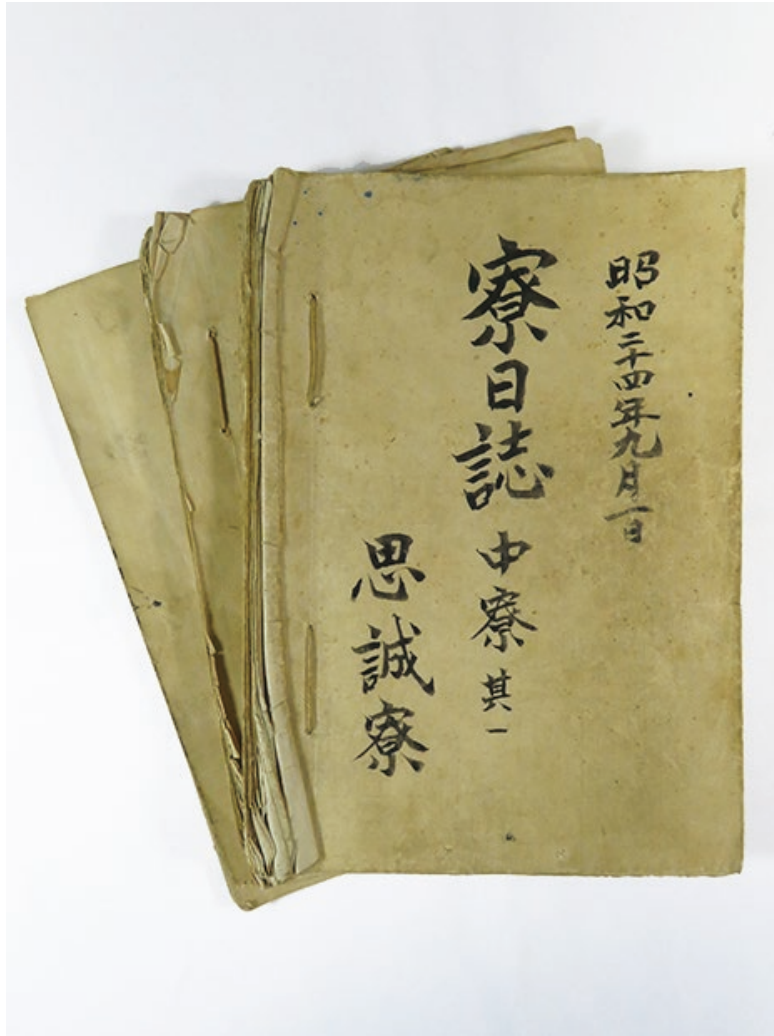 昭和二十四年九月一日
寮日誌 中寮 其一
思誠寮